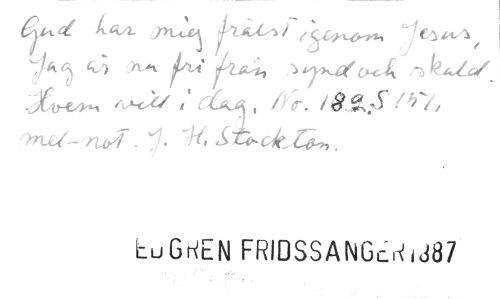 Gud har mig frälst igenom Jesus,
Jag är nu fri från synd och skuld.
Hvem vill i dag. No. 182, S 151,
mel-not. J. H. Stockton.
EDGREN FRIDSSANGER 1887